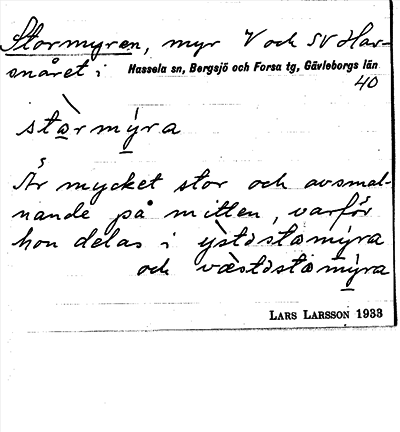 Stormyren, myr V och SV Har-
snåret i Hassela sn, Bergsjö och Forsa tg, Gävleborgs län
40
stàrmýra
Är mycket stor och avsmal-
nande på mitten, varför
hon delas i
och
LARS LARSSON 1933